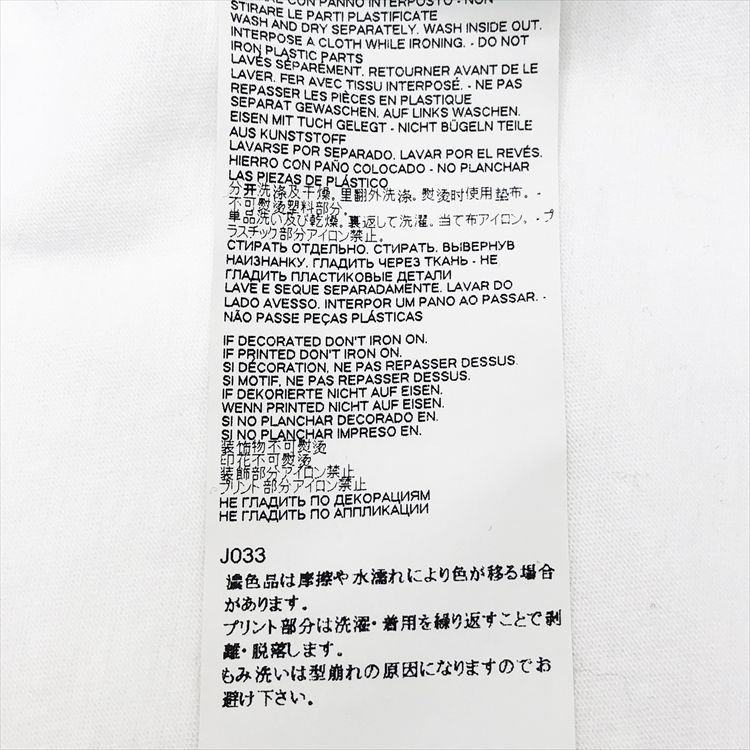 CON PANNO INTERPOSTO - NON
STIRARE LE PARTI PLASTIFICATE
WASH AND DRY SEPARATELY. WASH INSIDE OUT.
INTERPOSE A CLOTH WHILE IRONING. - DO NOT
IRON PLASTIC PARTS
LAVÉS SÉPARÉMENT. RETOURNER AVANT DE LE
LAVER. FER AVEC TISSU INTERPOSÉ. - NE PAS
REPASSER LES PIÈCES EN PLASTIQUE
SEPARAT GEWASCHEN. AUF LINKS WASCHEN.
EISEN MIT TUCH GELEGT - NICHT BÜGELN TEILE
AUS KUNSTSTOFF
LAVARSE POR SEPARADO. LAVAR POR EL REVÉS.
HIERRO CON PAÑO COLOCADO - NO PLANCHAR
LAS PIEZAS DE PLÁSTICO
分开洗涤及干燥。里翻外洗涤。熨烫时使用垫布。-
不可熨烫塑料部分。
単品洗い及び乾燥。裏返して洗濯。当て布アイロン。-プ
ラスチック部分アイロン禁止。
СТИРАТЬ ОТДЕЛЬНО. СТИРАТЬ, ВЫВЕРНУВ
НАИЗНАНКУ. ГЛАДИТЬ ЧЕРЕЗ ТКАНЬ - НЕ
ГЛАДИТЬ ПЛАСТИКОВЫЕ ДЕТАЛИ
LAVE E SEQUE SEPARADAMENTE. LAVAR DO
LADO AVESSO. INTERPOR UM PANO AO PASSAR. -
NÃO PASSE PEÇAS PLÁSTICAS
IF DECORATED DON'T IRON ON.
IF PRINTED DON'T IRON ON.
SI DÉCORATION, NE PAS REPASSER DESSUS.
SI MOTIF, NE PAS REPASSER DESSUS.
IF DEKORIERTE NICHT AUF EISEN.
WENN PRINTED NICHT AUF EISEN.
SI NO PLANCHAR DECORADO EN.
SI NO PLANCHAR IMPRESO EN.
装饰物不可熨烫
印花不可熨烫
装飾部分アイロン禁止
プリント部分アイロン禁止
НЕ ГЛАДИТЬ ПО ДЕКОРАЦИЯМ
НЕ ГЛАДИТЬ ПО АППЛИКАЦИИ
J033
濃色品は摩擦や水濡れにより色が移る場合
があります。
プリント部分は洗濯・着用を繰り返すことで剥
離・脱落します。
もみ洗いは型崩れの原因になりますのでお
避け下さい。